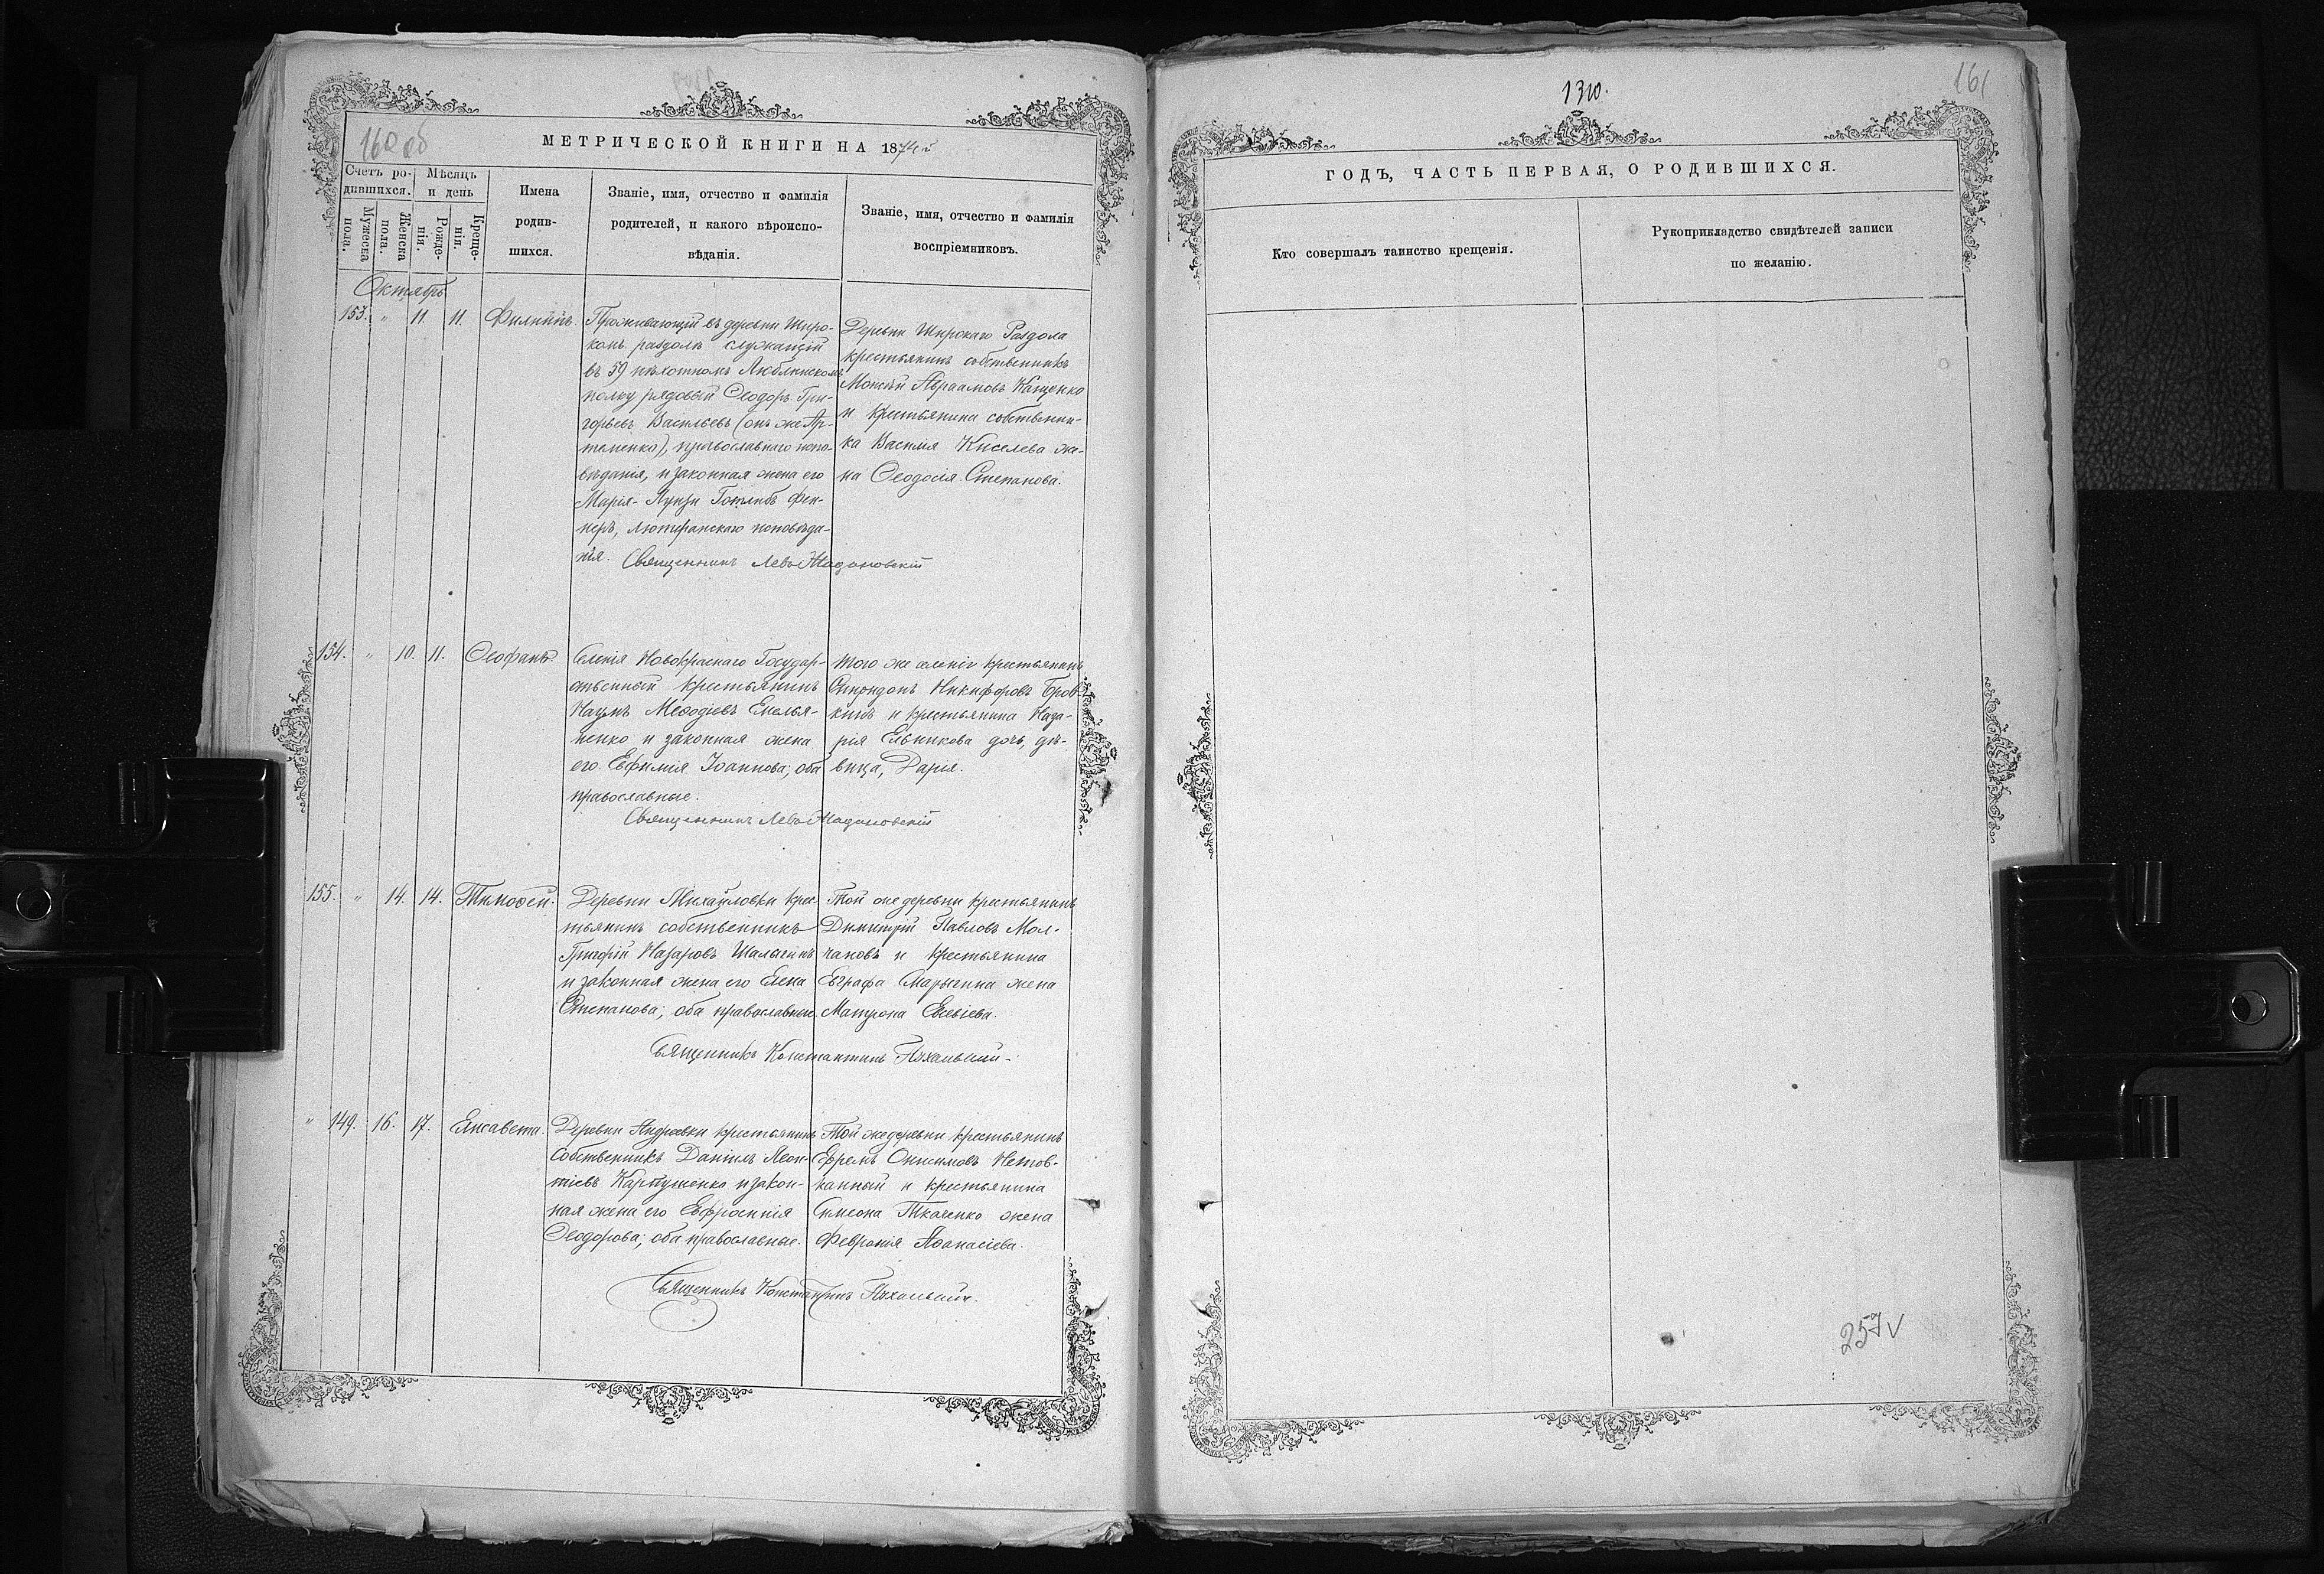 160 об
МЕТРИЧЕСКОЙ КНИГИ НА 1874й
Счетъ ро-
дившихся.
Мужеска
пола.
Женска
пола.
Мѣсяцъ
и день
Рожде-
нія.
Креще-
нія.
Имена
родив-
шихся.
Званіе, имя, отчество и фамилія
родителей, и какого вѣроиспо-
вѣданія.
Званіе, имя, отчество и фамилія
воспріемниковъ.
Октябрь
153. " 11. 11. Филиппъ.
Проживающій въ деревни Широ-
комъ раздолѣ служащій
въ 59 пѣхотномъ Люблинскомъ
полку рядовый Ѳеодоръ Гри-
горьевъ Васильевъ (онъ же Ар-
теменко), православнаго испо-
вѣданія, и законная жена его
Марія-Луиза Готлибъ Фен-
неръ, лютеранскаго исповѣда-
нія.
Деревни Широкаго Раздола
крестьянинъ собственникъ
Моисей Авраамовъ Кащенко
и крестьянина собственни-
ка Василія Киселева же-
на Ѳеодосія Степанова.
Священникъ Левъ
154. " 10. 11. Ѳеофанъ.
Селенія Новокраснаго Государ-
ственный крестьянинъ
Наумъ Меѳодіевъ Емелья-
ненко и законная жена
его Евфимія Іоаннова; оба
православные.
Того же селенія крестьянинъ
Спиридонъ Никифоровъ Бров-
кинъ и крестьянина Наза-
рія Ельникова дочь, дѣ-
вица, Дарія.
Священникъ Левъ
155. " 14. 14. Тимоѳей.
Деревни Михайловки крес-
тьянинъ собственникъ
Григорій Назаровъ Шалыгинъ
и законная жена его Елена
Степанова; оба православные.
Той же деревни крестьянинъ
Димитрій Павловъ Мол-
чановъ и крестьянина
Евграфа Марыгина жена
Матрона Евсевіева.
Священникъ Константинъ
" 149. 16. 17. Елисавета.
Деревни Андреевки крестьянинъ
Собственникъ Даніилъ Леон-
тіевъ Карпушенко и закон-
ная жена его Евфросинія
Ѳеодорова; оба православные.
Той же деревни крестьянинъ
Ефремъ Онисимовъ Нетов-
канный и крестьянина
Симеона Ткаченко жена
Февронія Аѳанасіева.
Священникъ Константинъ
1310.
161
ГОДЪ, ЧАСТЬ ПЕРВАЯ, О РОДИВШИХСЯ.
Кто совершалъ таинство крещенія.
Рукоприкладство свидѣтелей записи
по желанію.
257 v